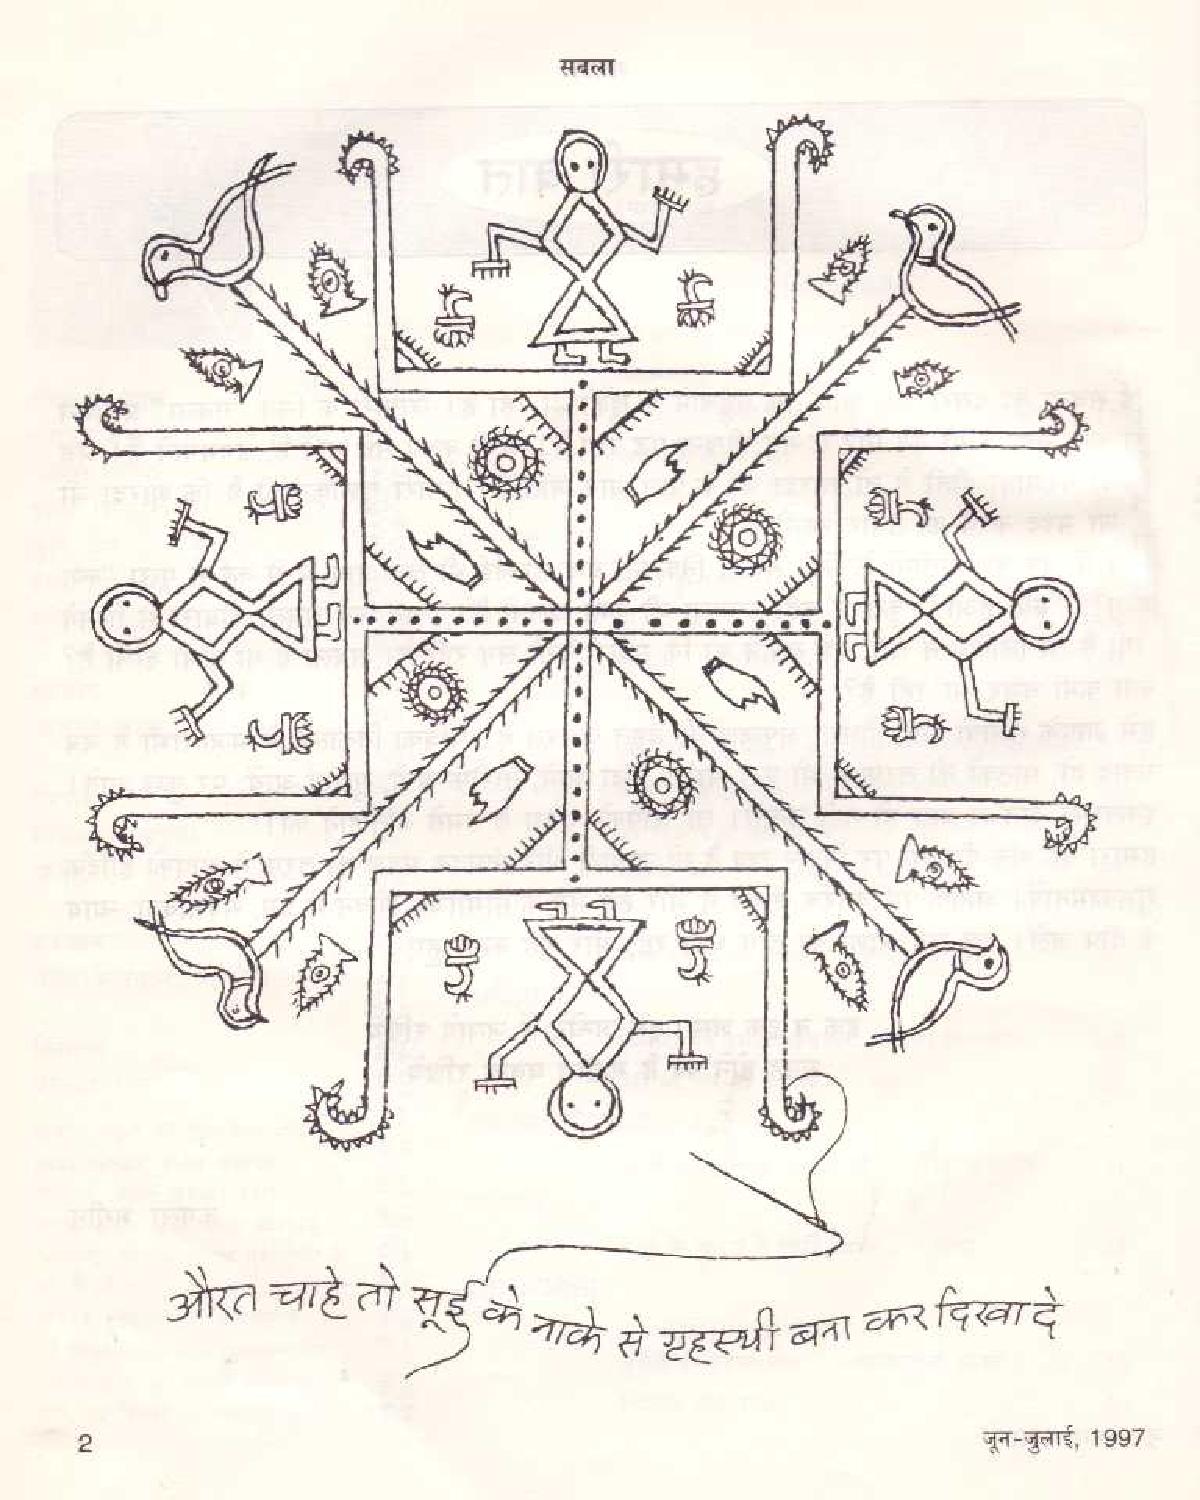 सबला
औरत चाहे तो सूई के नाके से गृहस्थी बना कर दिखा दे
2
जून-जुलाई, 1997